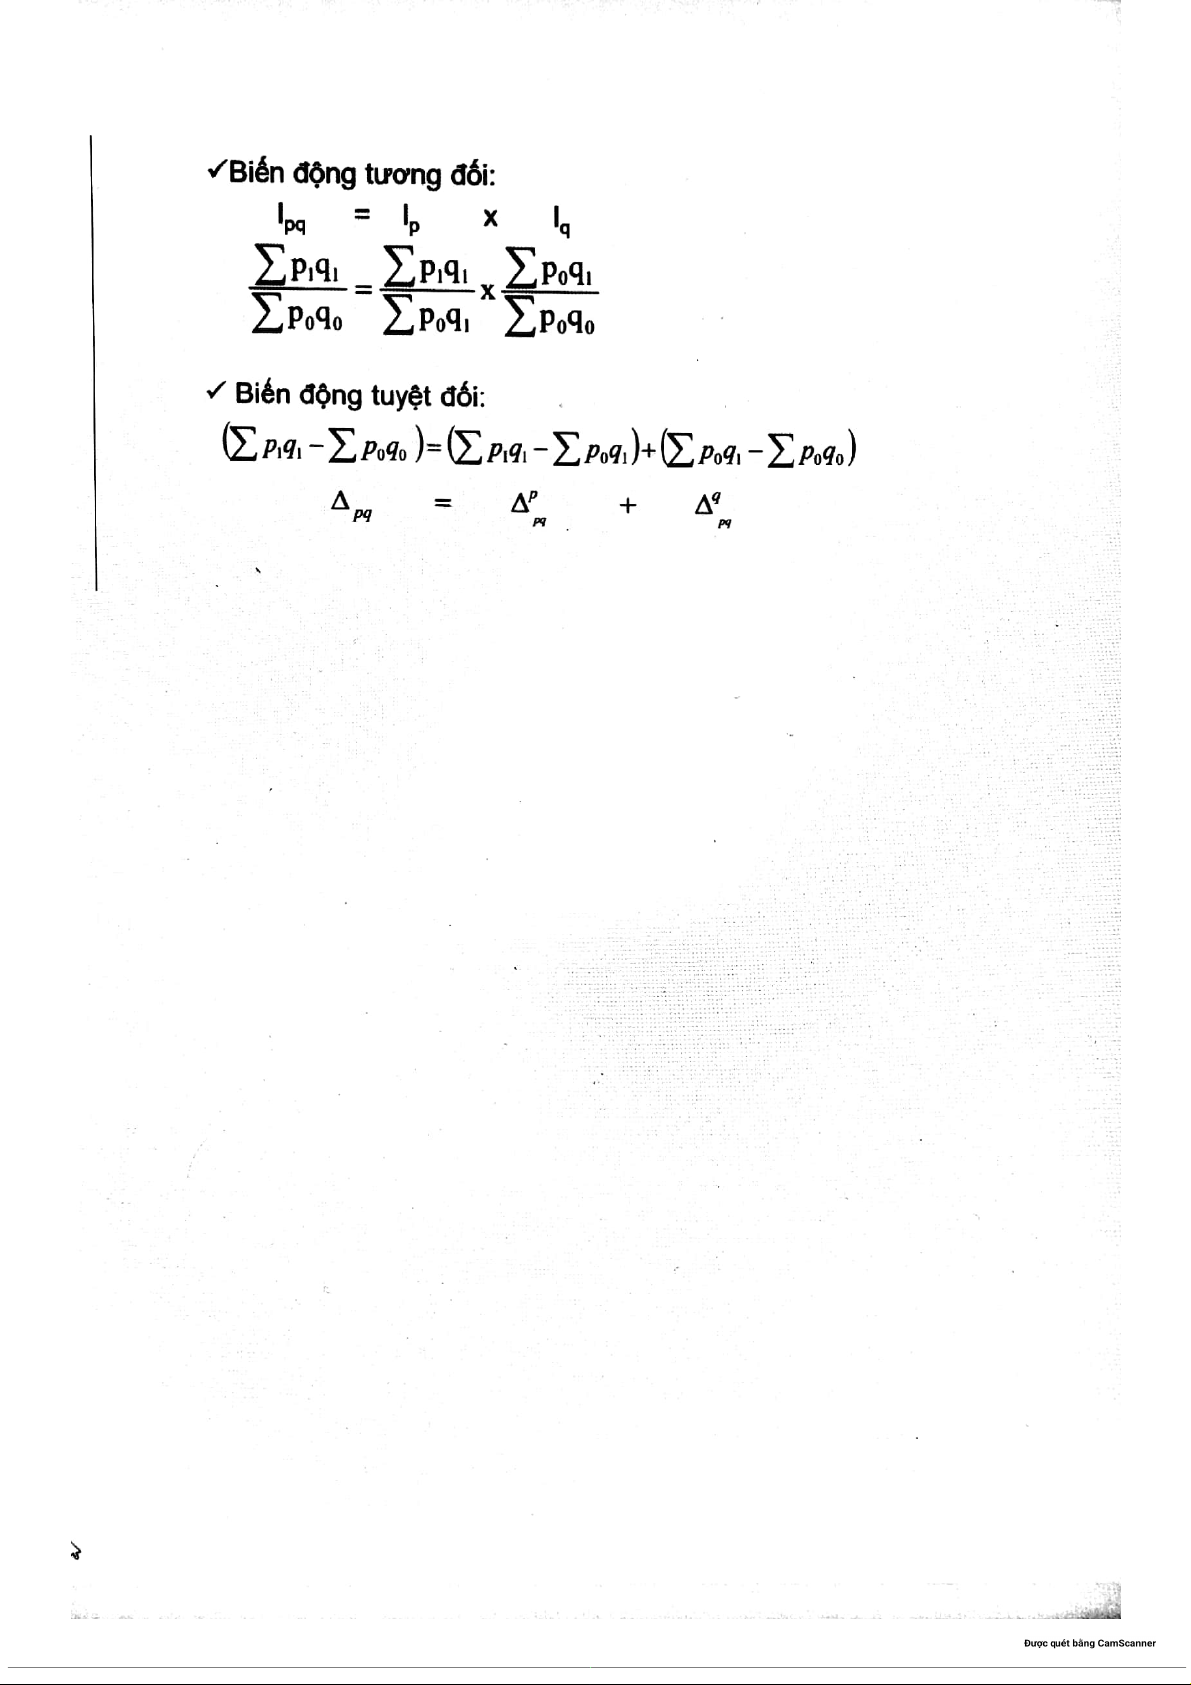 ✓Biến động tương đối:
I_pq = I_p x I_q
∑p₁q₁ / ∑p₀q₀ = ∑p₁q₁ / ∑p₀q₁ x ∑p₀q₁ / ∑p₀q₀
✓ Biến động tuyệt đối:
(∑p₁q₁ − ∑p₀q₀) = (∑p₁q₁ − ∑p₀q₁) + (∑p₀q₁ − ∑p₀q₀)
Δ_pq = Δ^p_pq + Δ^q_pq
Được quét bằng CamScanner